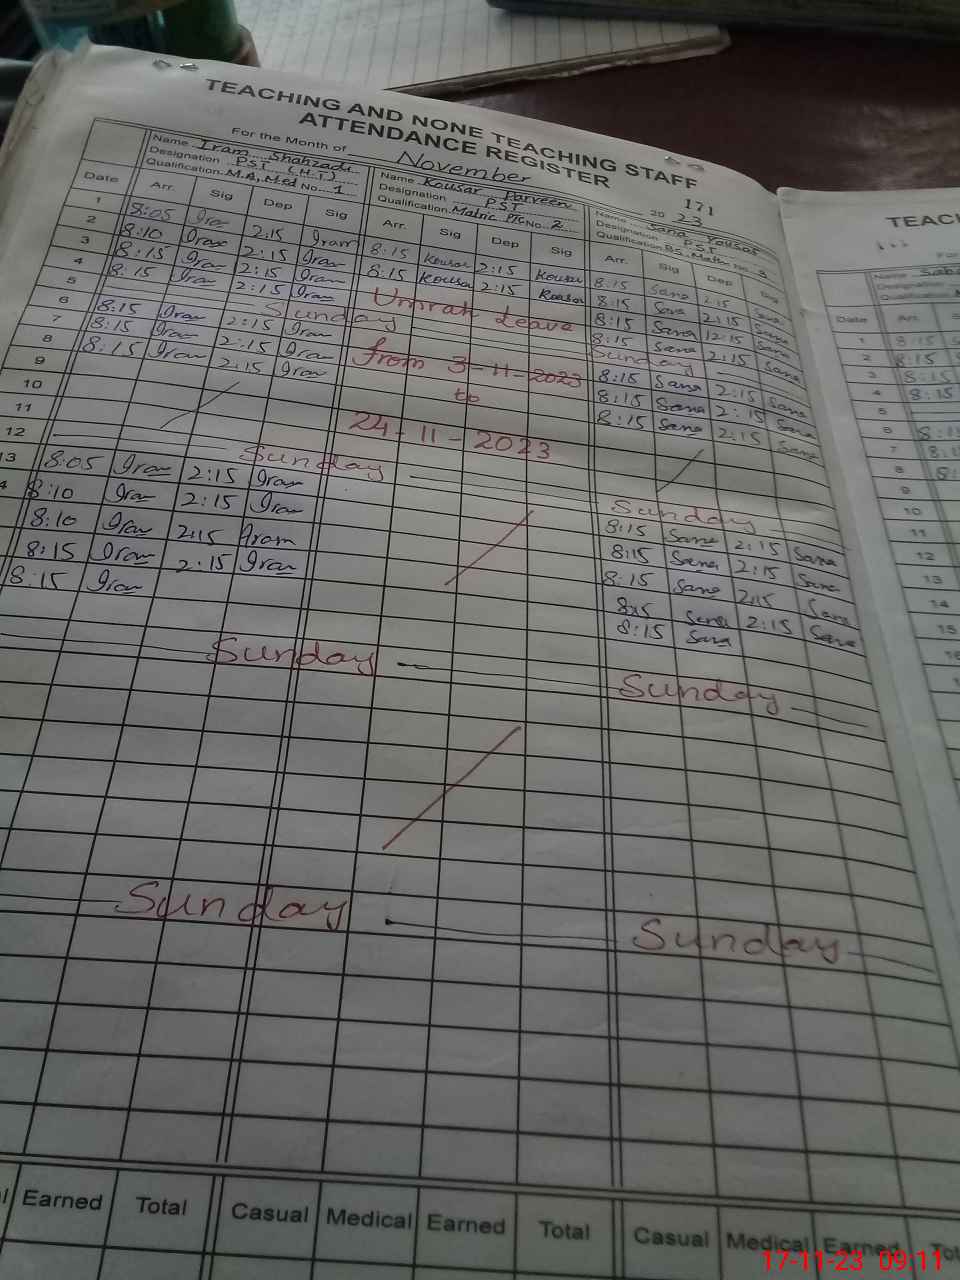 TEACHING AND NONE TEACHING STAFF
ATTENDANCE REGISTER
For the Month of November 20 23
171
Name Iram Shahzadi
Designation PST (H.T)
Qualification M.A, Med No. 1
Name Kousar Parveen
Designation PST
Qualification Matric PTC No. 2
Name Sana Yousaf
Designation PST
Qualification BS. Math No. 3
Date Arr. Sig Dep Sig Arr. Sig Dep Sig Arr. Sig Dep Sig
1 8:05 Iram 2:15 Iram 8:15 Kousar 2:15 Kousar 8:15 Sana 2:15 Sana
2 8:10 Iram 2:15 Iram 8:15 Kousar 2:15 Kousar 8:15 Sana 2:15 Sana
3 8:15 Iram 2:15 Iram Umrah Leave 8:15 Sana 12:15 Sana
4 8:15 Iram 2:15 Iram 8:15 Sana 2:15 Sana
5 Sunday Sunday
6 8:15 Iram 2:15 Iram from 3-11-2023 8:15 Sana 2:15 Sana
7 8:15 Iram 2:15 Iram to 8:15 Sana 2:15 Sana
8 8:15 Iram 2:15 Iram 24-11-2023 8:15 Sana 2:15 Sana
9
10
11
12 Sunday Sunday
13 8:05 Iram 2:15 Iram 8:15 Sana 2:15 Sana
8:10 Iram 2:15 Iram 8:15 Sana 2:15 Sana
8:10 Iram 2:15 Iram 8:15 Sana 2:15 Sana
8:15 Iram 2:15 Iram 8:15 Sana 2:15 Sana
8:15 Iram 8:15 Sana
Sunday Sunday
Sunday Sunday
Earned Total Casual Medical Earned Total Casual Medical Earned
TEACH
Name
Date Arr.
1 8:15
2 8:15
3 8:15
4 8:15
5
6
7
8
9
10
11
12
13
14
15
17-11-23 09:11